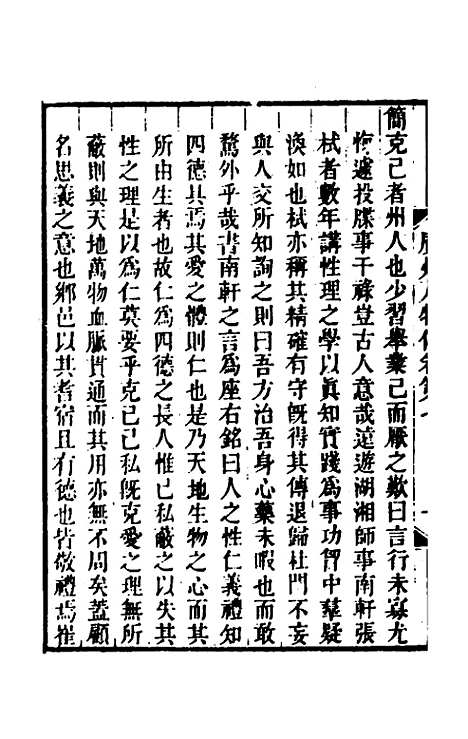 簡克己者州人也少習舉業已而厭之歎曰言行未寡尤
悔遽投牒事干祿豈古人意哉遠遊湖湘師事南軒張
栻者數年講性理之學以眞知實踐爲事功胷中羣疑
渙如也栻亦稱其精確有守旣得其傳退歸杜門不妄
與人交所知詢之則曰吾方治吾身心藥未暇也而敢
騖外乎哉書南軒之言爲座右銘曰人之性仁義禮知
四德具焉其愛之體則仁也是乃天地生物之心而其
所由生者也故仁爲四德之長人惟己私蔽之以失其
性之理是以爲仁莫要乎克己己私旣克愛之理無所
蔽則與天地萬物血脈貫通而其用亦無不周矣蓋顧
名思義之意也鄉邑以其耆宿且有德也皆敬禮焉崔